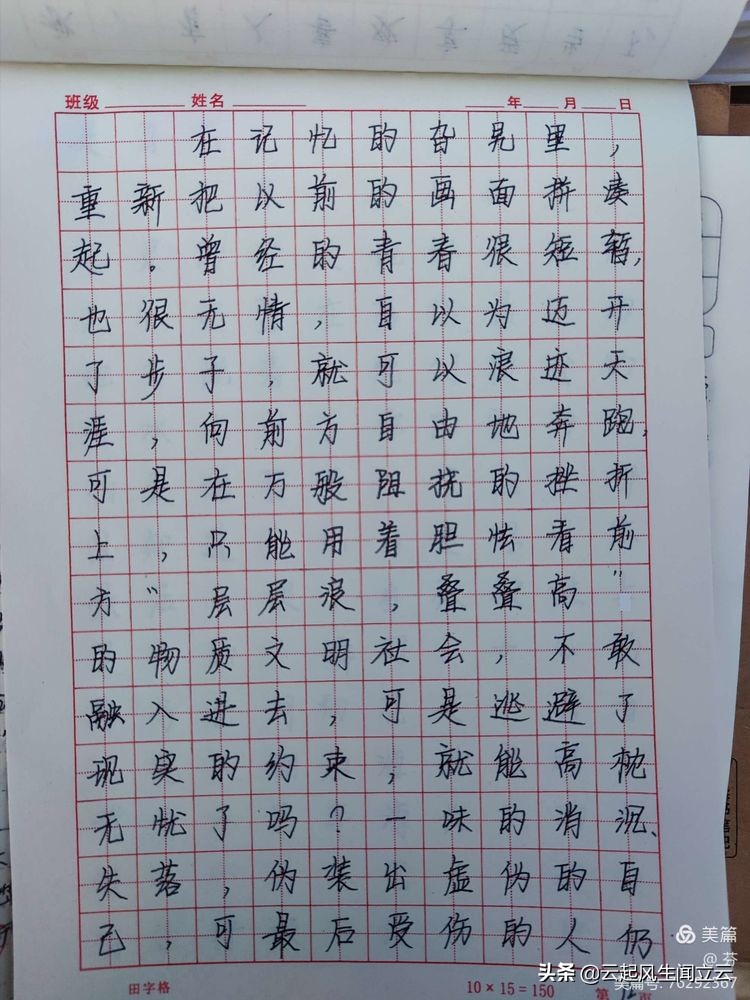 班级 姓名 年 月 日
在记忆的旮旯里，
重新把以前的画面拼凑
起。曾经的青春很短暂，
也很无情，自以为迈开
了步子，就可以浪迹天
涯，向前方自由地奔跑，
可是在万般阻挠的挫折
上，只能用着胆怯看前
方"层层浪，叠叠高"
的物质文明社会，不敢
融入进去，可是逃避了
现实的约束，就能高枕
无忧了吗？一味的消沉、
失落，伪装出虚伪的自
己，可最后受伤的人仍
田字格 10×15=150 第
美篇
@芬
美篇号: 76292367
头条 @云起风生闻立云